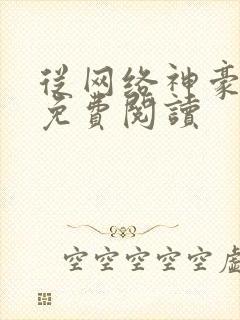 從网络神豪
免費閱讀
空空空空空虛